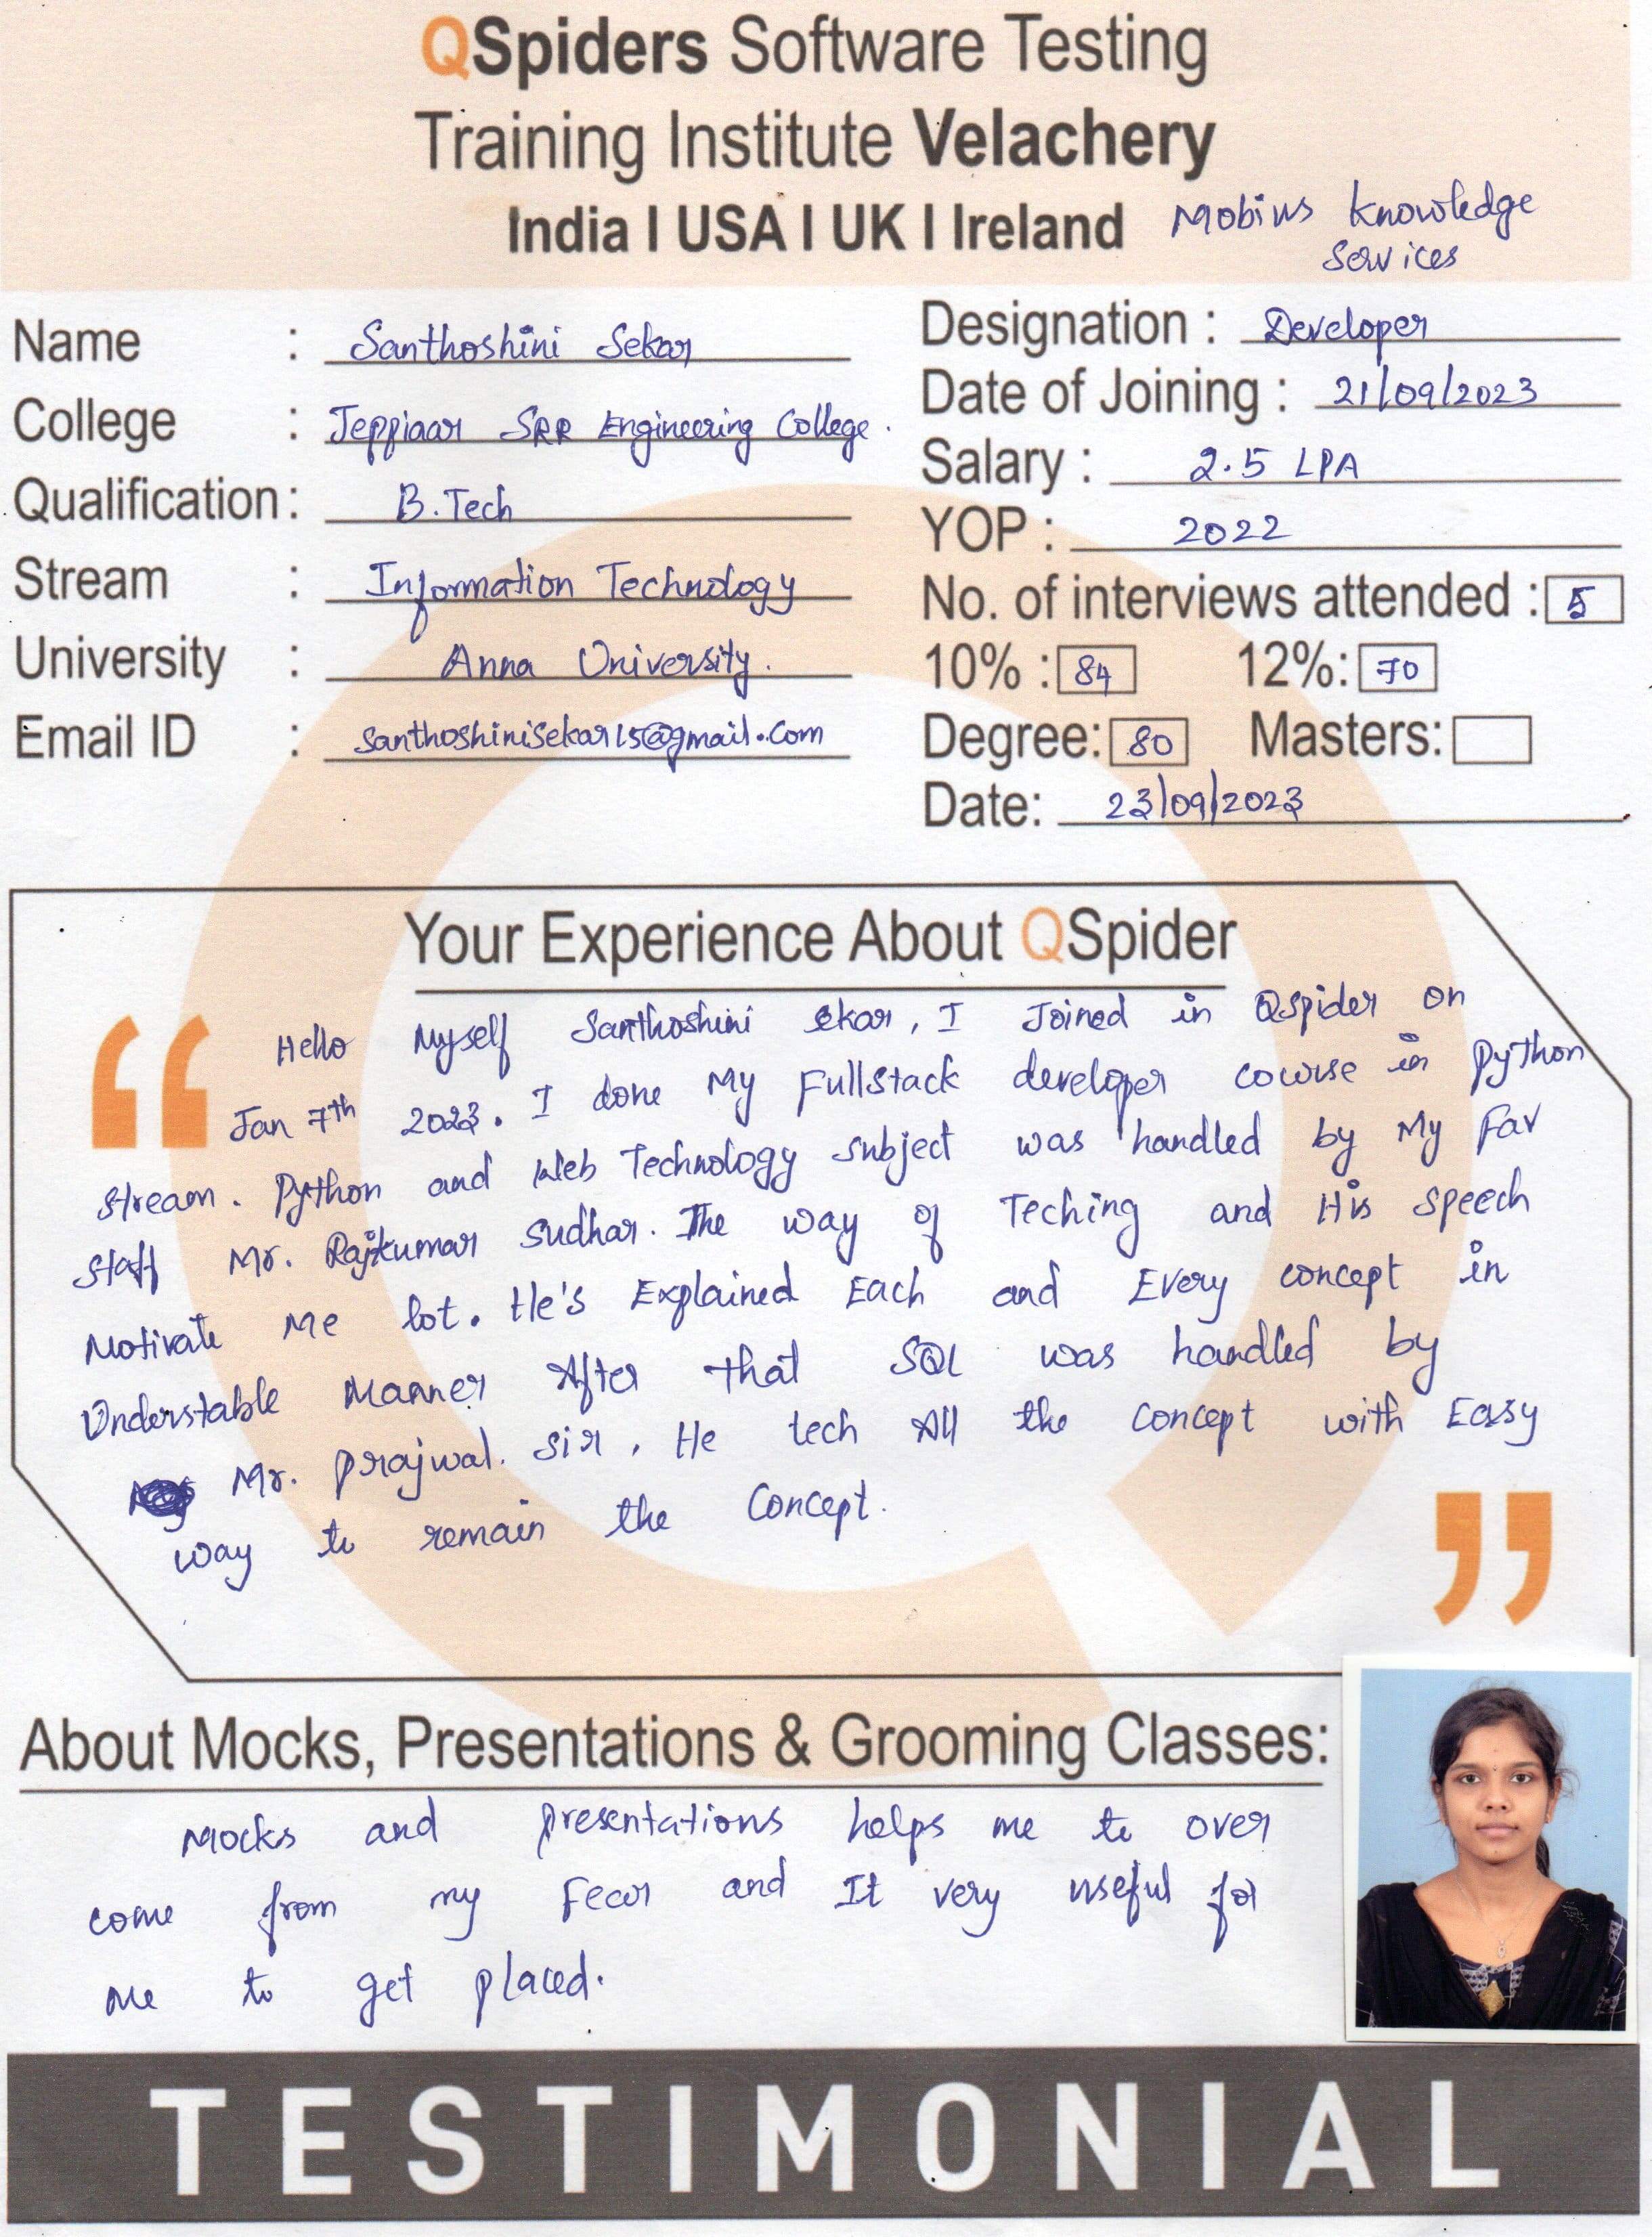 QSpiders Software Testing
Training Institute Velachery
India I USA I UK I Ireland
Mobius Knowledge
Services
Name : Santhoshini Sekar
College : Jeppiaar SRR Engineering College.
Qualification : B.Tech
Stream : Information Technology
University : Anna University.
Email ID : santhoshinisekar15@gmail.com
Designation : Developer
Date of Joining : 21/09/2023
Salary : 2.5 LPA
YOP : 2022
No. of interviews attended : 5
10% : 84 12%: 70
Degree: 80 Masters:
Date: 23/09/2023
Your Experience About QSpider
“
Hello Myself Santhoshini Sekar, I Joined in Qspider on
Jan 7th 2023. I done My Fullstack developer course in Python
stream. Python and Web Technology subject was handled by My Fav
staff Mr. Rajkumar Sudhar. The way of Teching and His speech
Motivate Me lot. He's Explained Each and Every concept in
Understable Manner After that SQL was handled by
Mr. Prajwal. sir, He tech All the concept with Easy
way to remain the Concept.
”
About Mocks, Presentations & Grooming Classes:
Mocks and presentations helps me to over
come from my Fear and It very useful for
me to get placed.
TESTIMONIAL